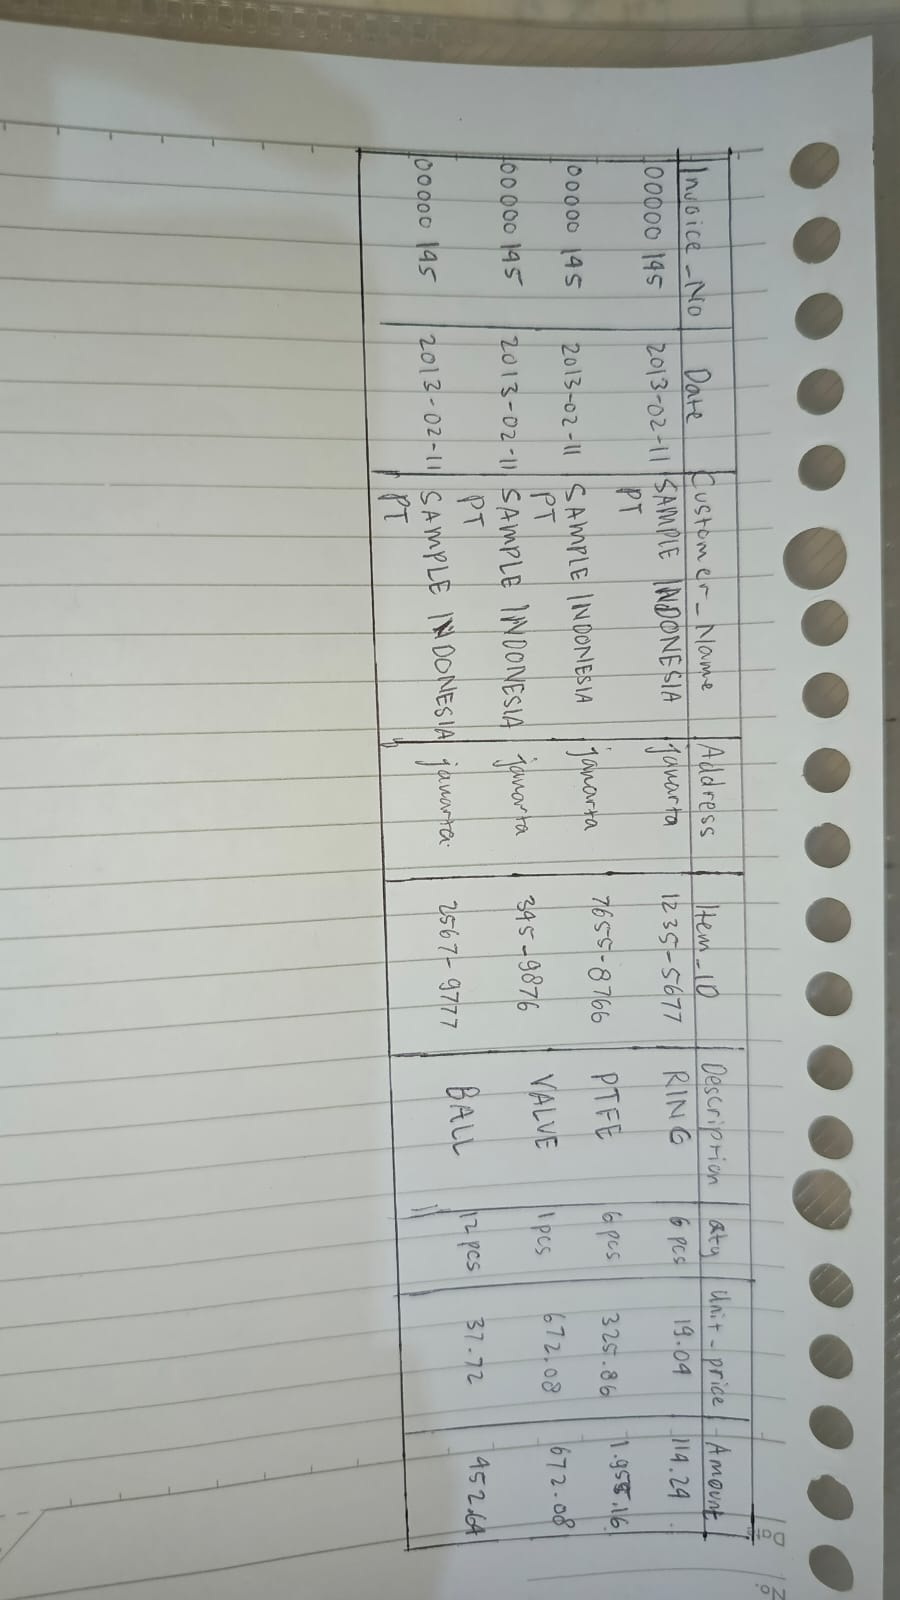 Invoice_No Date Customer_Name Address Item_ID Description Qty Unit-price Amount
00000195 2013-02-11 SAMPLE INDONESIA jakarta 1235-5677 RING 6 pcs 19.04 114.24
PT
00000195 2013-02-11 SAMPLE INDONESIA jakarta 7655-8766 PTFE 6 pcs 325.86 1.955.16
PT
00000195 2013-02-11 SAMPLE INDONESIA jakarta 345-9876 VALVE 1 pcs 672.08 672.08
PT
00000195 2013-02-11 SAMPLE INDONESIA jakarta 2567-9777 BALL 12 pcs 37.72 452.64
PT